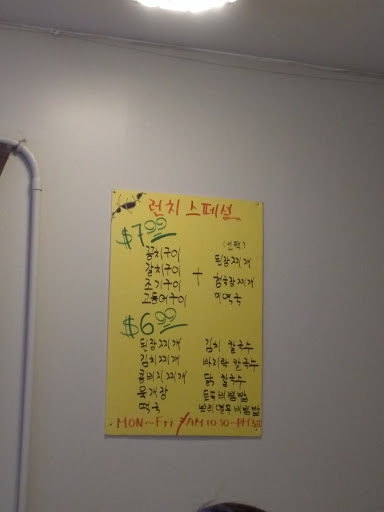 런치 스페셜
$7.99
꽁치구이
갈치구이
조기구이
고등어구이
+
(선택)
된장찌개
청국장찌개
미역국
$6.99
된장찌개
김치찌개
콩비지찌개
육개장
떡국
김치 칼국수
바지락 칼국수
칼국수
MON~Fri / AM 10:30~PM 3:00